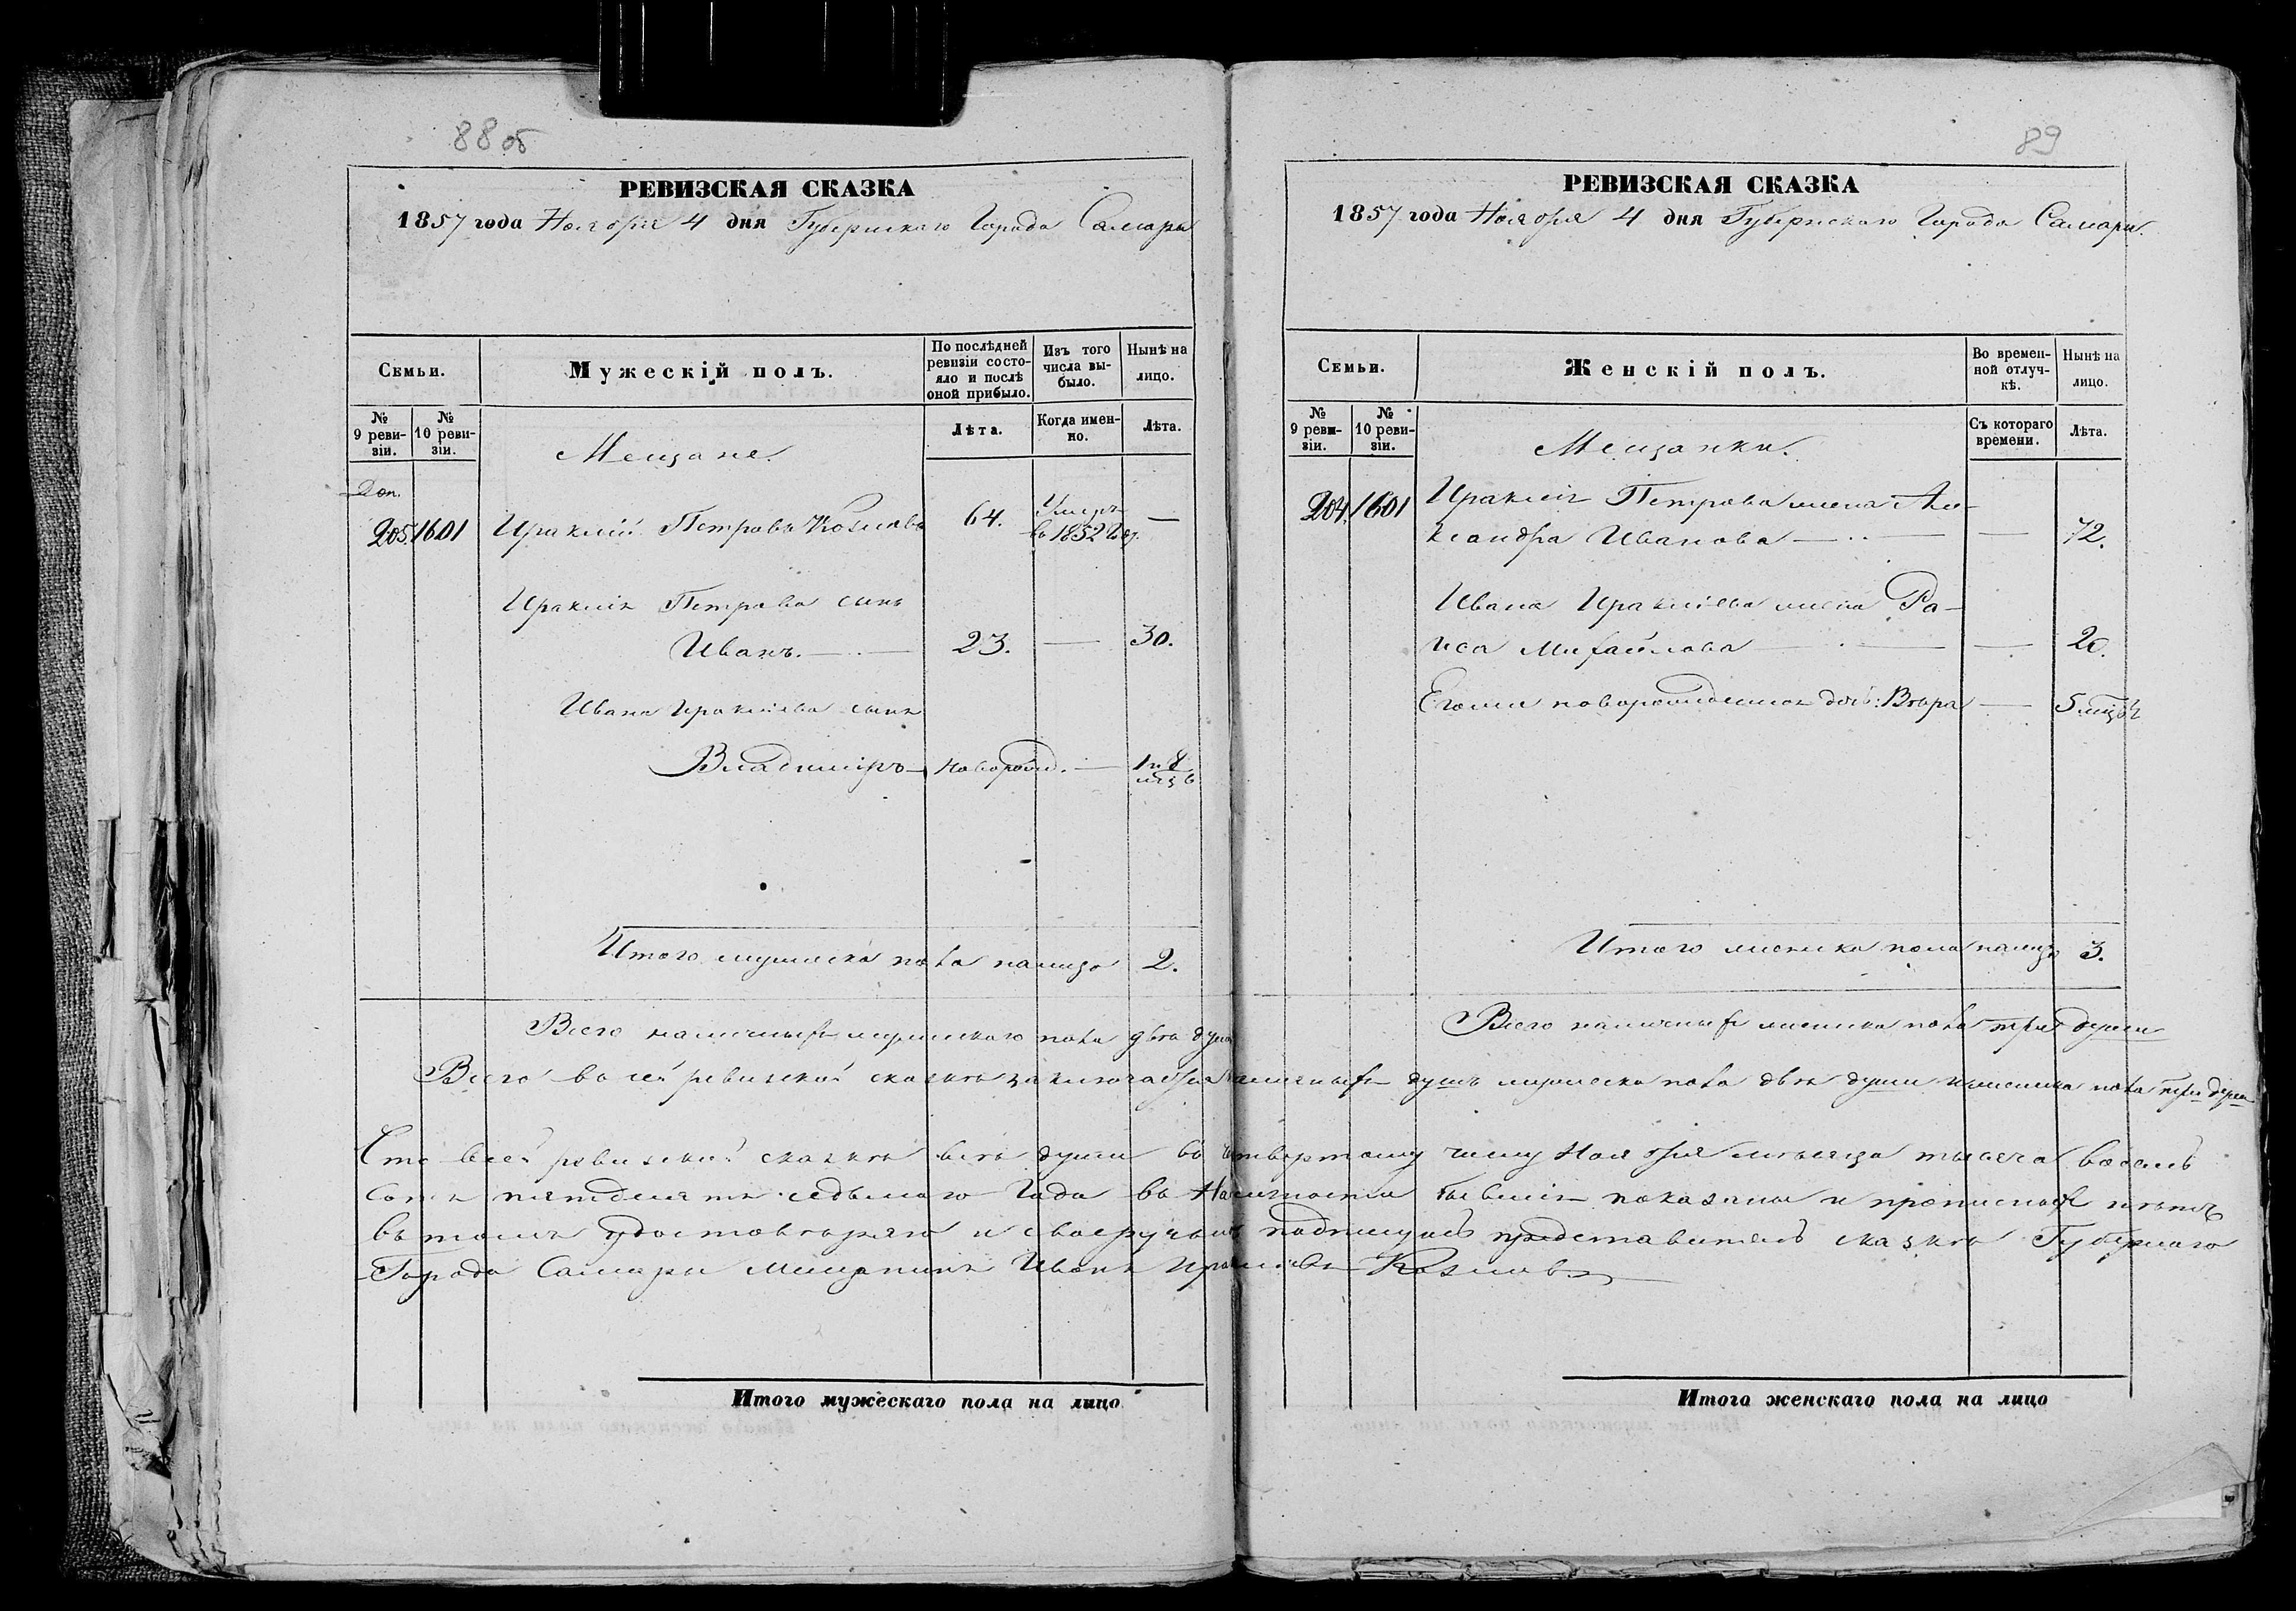 88 об
РЕВИЗСКАЯ СКАЗКА
1857 года Ноября 4 дня Губернскаго Города Самары
Семьи.
Мужескій полъ.
По послѣдней ревизіи состояло и послѣ оной прибыло.
Изъ того числа выбыло.
Нынѣ на лицо.
№ 9 ревизіи.
№ 10 ревизіи.
Лѣта.
Когда именно.
Лѣта.
Мещане.
Доп.
205. 1601 Ираклій Петровъ Козловъ 64. Умеръ въ 1852 год. —
Ираклія Петрова сынъ
Иванъ. — 23. — 30.
Ивана Ираклiева сынъ
Владиміръ — новорожд. —
Итого мужеска пола налицо 2.
Всего наличныхъ мужескаго пола двѣ души
89
РЕВИЗСКАЯ СКАЗКА
1857 года Ноября 4 дня Губернскаго Города Самары.
Семьи.
Женскій полъ.
Во временной отлучкѣ.
Нынѣ на лицо.
№ 9 ревизіи.
№ 10 ревизіи.
Съ котораго времени.
Лѣта.
Мещанки.
204. 1601 Ираклія Петрова жена Але-
ксандра Иванова — — 72.
Ивана Ираклiева жена Ра-
иса Михайлова — — 20.
Егоже новорожденная доч: Вѣра — 5 мцвъ
Итого женска пола налицо 3.
Всего наличныхъ женска пола три души
Всего въ сей ревизской сказкѣ заключается наличныхъ душъ мужеска пола двѣ души и женска пола три души
Что въ сей ревизской сказкѣ всѣ души къ четвертому числу Ноября мѣсяца тысяча восемь
сотъ пятдесятъ седьмаго Года въ Наличности бывшія показаны и прописныхъ нѣтъ
въ томъ удостовѣряю и своеручно подпишусь представитель сказки Губернскаго
Города Самары Мещанинъ Иванъ Иракліевъ Козловъ
Итого мужескаго пола на лицо
Итого женскаго пола на лицо